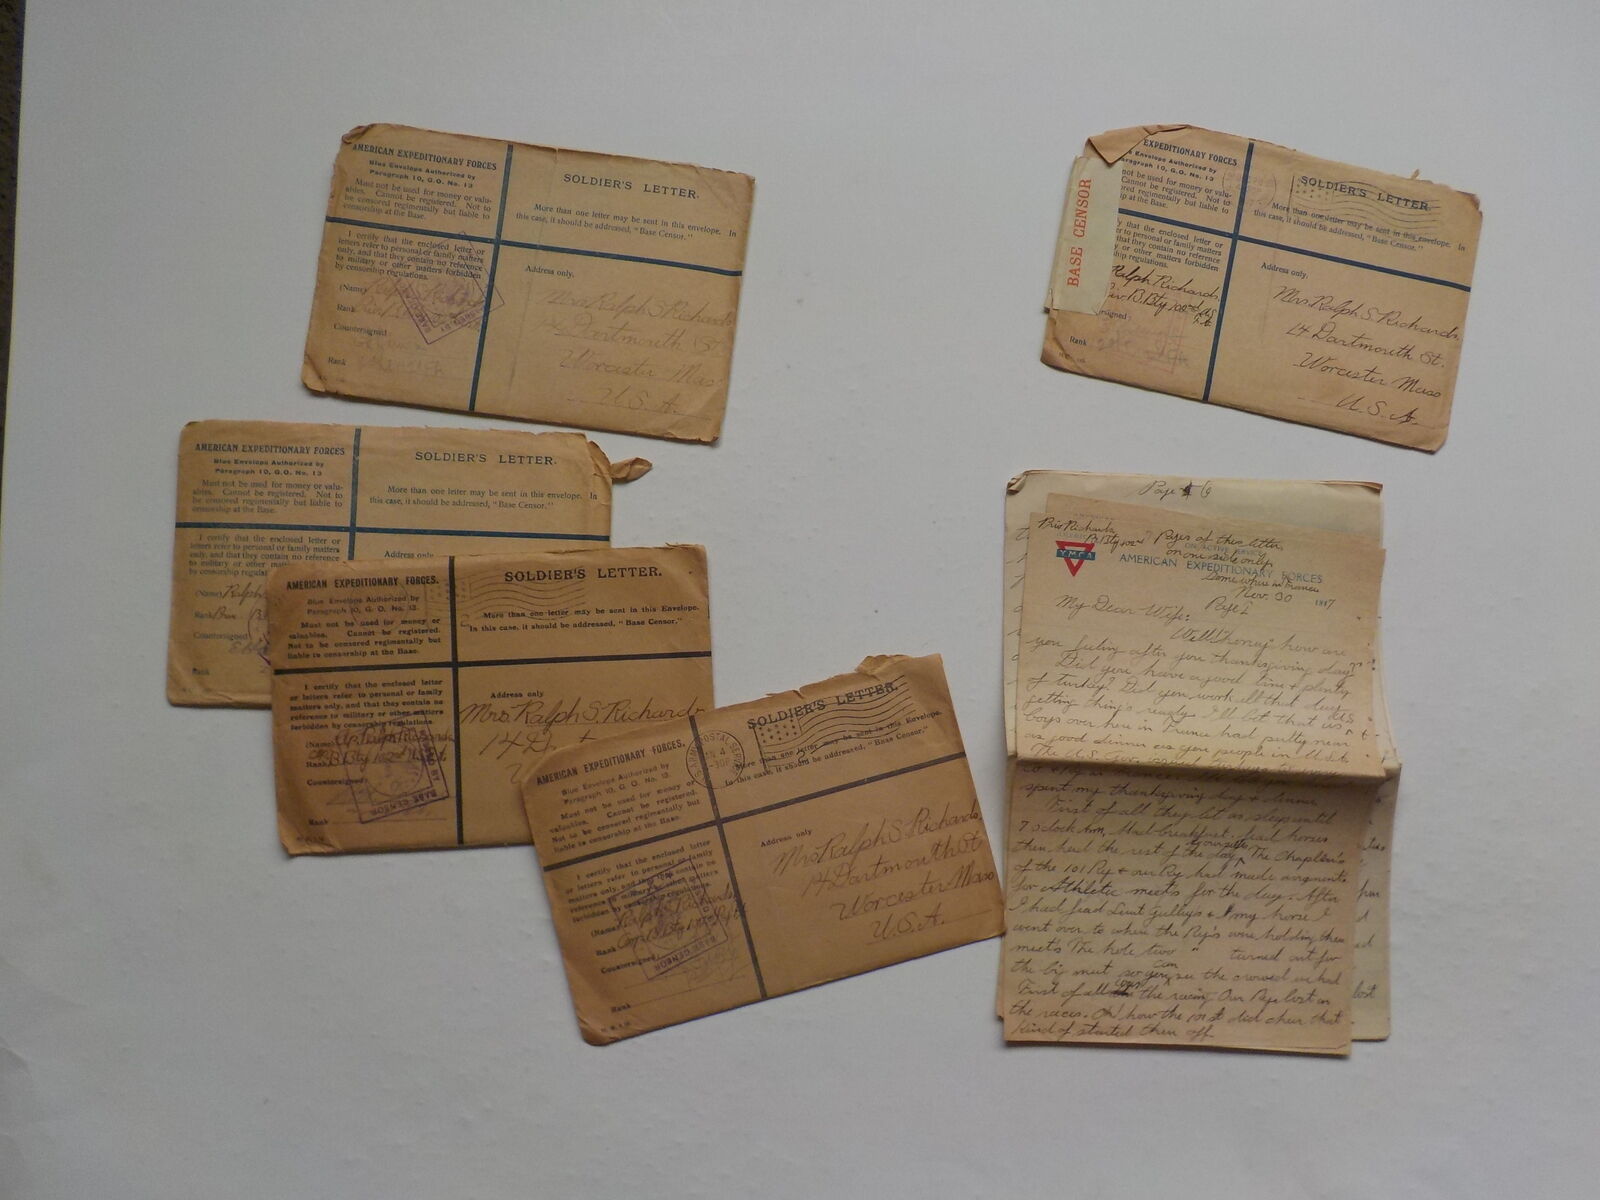 AMERICAN EXPEDITIONARY FORCES
Blue Envelope Authorized by
Paragraph 10, G.O. No. 13
Must not be used for money or valu-
ables. Cannot be registered. Not to
be censored regimentally but liable to
censorship at the Base.
I certify that the enclosed letter or
letters refer to personal or family matters
only, and that they contain no reference
to military or other matters forbidden
by censorship regulations.
(Name) Ralph S Richards
Rank
Countersigned
Rank
SOLDIER'S LETTER.
More than one letter may be sent in this envelope. In
this case, it should be addressed, "Base Censor."
Address only.
Mrs Ralph S Richards
14 Dartmouth St.
Worcester Mass
U.S.A.
EXPEDITIONARY FORCES
Envelope Authorized by
Paragraph 10, G.O. No. 13
be used for money or valu-
registered. Not to
regimentally but liable to
p at the Base.
y that the enclosed letter or
er to personal or family matters
that they contain no reference
y or other matters forbidden
hip regulations.
Ralph Richards.
B. Bty 102nd U.S.
rsigned
Rank
BASE CENSOR
SOLDIER'S LETTER.
More than one letter may be sent in this envelope. In
this case, it should be addressed, "Base Censor."
Address only.
Mrs Ralph S. Richards.
14 Dartmouth St.
Worcester Mass
U. S. A.
AMERICAN EXPEDITIONARY FORCES
Blue Envelope Authorized by
Paragraph 10, G.O. No. 13
Must not be used for money or valu-
ables. Cannot be registered. Not to
be censored regimentally but liable to
censorship at the Base.
I certify that the enclosed letter or
letters refer to personal or family matters
only, and that they contain no reference
to military or other matters
by censorship regulat
(Name) Ralph
Rank
Countersigned
Rank
SOLDIER'S LETTER.
More than one letter may be sent in this envelope. In
this case, it should be addressed, "Base Censor."
Address only.
AMERICAN EXPEDITIONARY FORCES.
Blue Envelope Authorized by
Paragraph 10, G.O. No. 13.
Must not be used for money or
valuables. Cannot be registered.
Not to be censored regimentally but
liable to censorship at the Base.
I certify that the enclosed letter
or letters refer to personal or family
matters only, and that they contain no
reference to military or other matters
forbidden by censorship regulations.
(Name) Ralph Richards
Rank B Bty 102nd
Countersigned
BASE CENSOR
Rank
SOLDIER'S LETTER.
More than one letter may be sent in this Envelope.
In this case, it should be addressed, "Base Censor."
Address only
Mrs Ralph S. Richards
14 D
AMERICAN EXPEDITIONARY FORCES.
Blue Envelope Authorized by
Paragraph 10, G.O. No. 13.
Must not be used for money or
valuables. Cannot be registered.
Not to be censored regimentally but
liable to censorship at the Base.
I certify that the enclosed letter
or letters refer to personal or family
matters only, and that they contain no
reference to military or other matters
forbidden by censorship regulations.
(Name) Ralph S. Richards
Rank Corp B Bty 102
Countersigned
BASE CENSOR
Rank
SOLDIER'S LETTER.
More than one letter may be sent in this Envelope.
In this case, it should be addressed, "Base Censor."
Address only
Mrs Ralph S Richards.
14 Dartmouth St
Worcester Mass
U.S.A.
Page 6
Priv Richards
B. Bty 102nd
Pages of this letter
on one side only.
YMCA
ON ACTIVE SERVICE
AMERICAN EXPEDITIONARY FORCES
Somewhere in France
Nov. 30 1917
My Dear Wife: Page 1
Well "honey" how are
you feeling after you thanksgiving day?
Did you have a good time & plenty
of turkey? Did you work all that day
getting things ready. I'll bet that us
boys over here in France had pretty near
as good dinner as you people in U.S.A.
The U.S. Gov. issued
spent my thanksgiving day & dinner
First of all they let us sleep until
7 oclock Am. Had breakfast, feed horses
then had the rest of the day to ourselfs The Chaplin's
of the 101 Rg & our Rg had made arrgments
for Athletic meets for the day. After
I had feed Lieut Gulleys & my horse I
went over to where the Rg's were holding there
meets The hole two " turned out for
the big meet so you can see the crowed we had
First of all was the racing Our Rg lost in
the races. Oh how the 101st did cheer that
kind of started them off